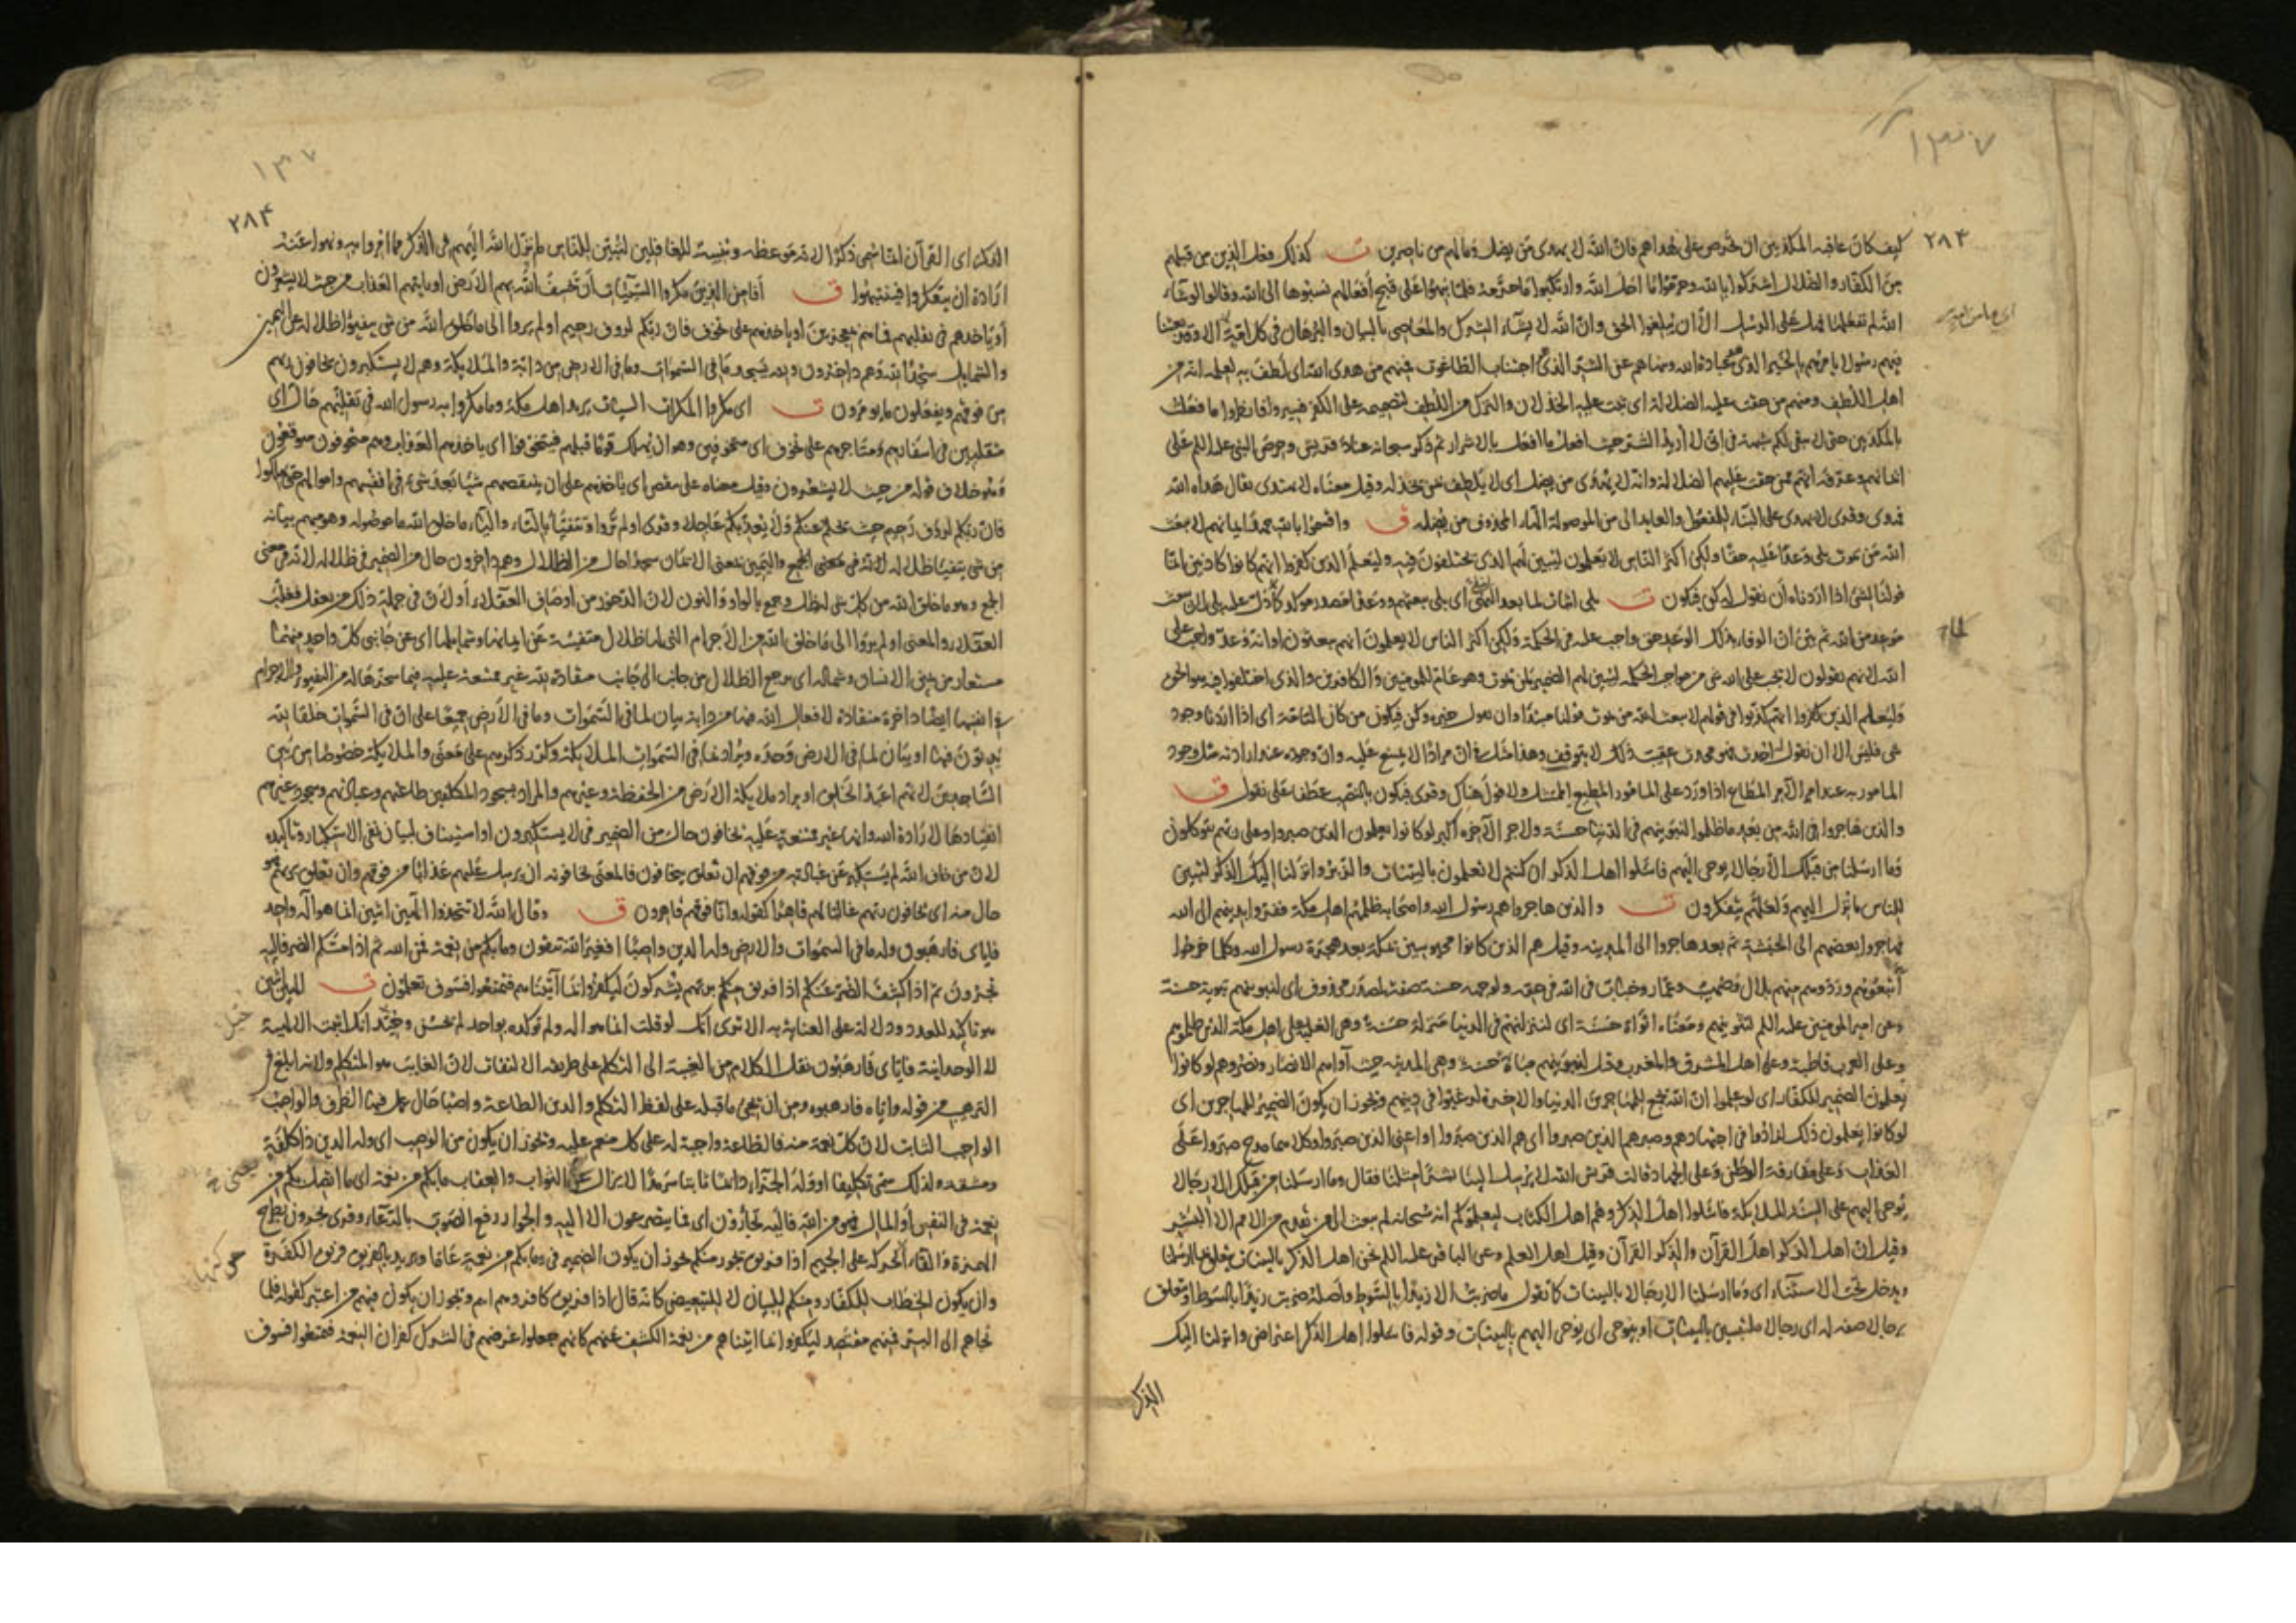 ١٣٧
٢٨٣
كيف كان عاقبة المكذبين ان تحرص على هداهم فان الله لا يهدى من يضل وما لهم من ناصرين ت كذلك فعل الذين من قبلهم
من الكفار والضلال اشركوا بالله وحرموا ما احل الله وارتكبوا ما حرمه فلما نبهوا على قبح أفعالهم نسبوها الى الله وقالوا لو شاء
الله لم نفعلها فهل على الرسل الا ان يبلغوا الحق وان الله لا يشاء الشرك والمعاصى بالبيان والبرهان فى كل امة الا وقد بعثنا
فيهم رسول يامرهم بالخير الذى هو عبادة الله وينهاهم عن الشر الذى اجتناب الطاغوت فمنهم من هدى الله اى لطف به لعلمه انه من
اهل اللطف ومنهم من حقت عليه الضلالة اى ثبت عليه الخذلان والترك من اللطف لتصميمه على الكفر فسيروا فانظروا ما فعلت
بالمكذبين حتى لا يبقى لكم شبهة فى انى لا أريد الشر حيث افعل ما افعل بالاشرار ثم ذكر سبحانه عناد قريش وحرص النبى عليه السلم على
ايمانهم وعرفه انهم ممن حقت عليهم الضلالة وانه لا يهدى من يضل اى لا يلطف بمن يخذله وقيل معناه لا يهتدى يقال هداه الله
فهدى وقرى لا يهدى على البناء للمفعول والعايد الى من الموصولة الهاء المحذوف من يضله ق واقسموا بالله جهد ايمانهم لا يبعث
الله من يموت بلى وعدا عليه حقا ولكن اكثر الناس لا يعلمون ليبين لهم الذى يختلفون فيه وليعلم الذين كفروا انهم كانوا كاذبين انما
قولنا لشئ اذا اردناه أن نقول له كن فيكون ت بلى اثبات لما بعد النفى اى بلى يبعثهم ووعد الله مصدر مؤكد لما دل عليه بلى لان يبعث
موعد من الله ثم بين ان الوفاء بذلك الوعد حق واجب عليه فى الحكمة ولكن اكثر الناس لا يعلمون انهم يبعثون او انه وعد واجب على
الله لانهم يقولون لا يجب على الله شى من مواجب الحكمة ليبين لهم الضمير لمن يموت وهو عام للمومنين والكافرين والذى اختلفوا فيه هو الحق
وليعلم الذين كفروا انهم كذبوا فى قولهم لا يبعث الله من يموت قولنا مبتدأ وان نقول خبره وكن فيكون من كان التامة اى اذا اردنا وجود
شى فليس الا ان نقول له احدث فهو يحدث عقيب ذلك لا يتوقف وهذا مثل لان مرادا لا يمتنع عليه وان وجوده عند ارادته مثل وجود
المامور به عند امر الآمر المطاع اذا ورد على المامور المطيع الممتثل ولا قول هناك وقرى فيكون بالنصب عطفا على نقول ق
والذين هاجروا فى الله من بعد ما ظلموا لنبوئنهم فى الدنيا حسنة ولاجر الآخرة اكبر لو كانوا يعلمون الذين صبروا وعلى ربهم يتوكلون
وما ارسلنا من قبلك الا رجالا يوحى اليهم فاسئلوا اهل الذكر ان كنتم لا تعلمون بالبينات والزبر وانزلنا اليك الذكر لتبين
للناس ما نزل اليهم ولعلهم يتفكرون ت والذين هاجروا هم رسول الله واصحابه ظلمهم اهل مكة ففروا بدينهم الى الله
فهاجر بعضهم الى الحبشة ثم بعد هاجروا الى المدينه وقيل هم الذين كانوا محبوسين بمكة بعد هجرة رسول الله وكلما خرجوا
اتبعوهم وردوهم منهم بلال وصهيب وعمار وخباب فى الله فى حقه ولوجهه حسنة صفة لمصدر محذوف اى لنبوئنهم تبوئة حسنة
وعن امير المومنين عليه السلم لنثوينهم ومعناه اثواءة حسنة اى لننزلنهم فى الدنيا منزلة حسنة وهى الغلبة على اهل مكة الذين ظلموهم
وعلى العرب قاطبة وعلى اهل المشرق والمغرب وقيل لنبوئنهم مباءة حسنة وهى المدينه حيث آواهم الانصار ونصروهم لو كانوا
يعلمون الضمير للكفار اى لو علموا ان الله يجمع للمهاجرين الدنيا والاخرة لرغبوا فى دينهم ويجوز ان يكون الضمير للمهاجرين اى
لو كانوا يعلمون ذلك لزادوا فى اجتهادهم وصبرهم الذين صبروا اى هم الذين صبروا او اعنى الذين صبروا وكلاهما مدح صبروا على
العذاب وعلى مفارقة الوطن وعلى الجهاد قالت قريش الله لا يرسل الينا بشرا مثلنا فقال وما ارسلنا من قبلك الا رجالا
يوحى اليهم على السنة الملايكة فاسئلوا اهل الذكر وهم اهل الكتاب ليعلموكم انه سبحانه لم يبعث الى من تقدم من الامم الا البشر
وقيل ان اهل الذكر اهل القرآن والذكر القرآن وقيل اهل العلم وعن الباقر عليه السلم نحن اهل الذكر بالبينات يتعلق بارسلنا
ويدخل تحت الاستثناء اى وما ارسلنا الا رجالا بالبينات كما تقول ما ضربت الا زيدا بالسوط واصله ضربت زيدا بالسوط او يتعلق
برجالا صفة له اى رجالا ملتبسين بالبينات او بيوحى اى يوحى اليهم بالبينات وقوله فاسئلوا اهل الذكر اعتراض وانزلنا اليك
الذكر
١٣٧
٢٨٤
الذكر اى القرآن انما سمى ذكرا لانه موعظه وتنبيه للغافلين لتبين للناس ما نزل الله اليهم فى الذكر مما امروا به ونهوا عنه
ارادة ان يتفكروا فينتبهوا ق أفامن الذين مكروا السيئات أن يخسف الله بهم الارض او ياتيهم العذاب من حيث لا يشعرون
أو ياخذهم فى تقلبهم فما هم بمعجزين او ياخذهم على تخوف فان ربكم لروف رحيم اولم يروا الى ما خلق الله من شى يتفيؤا ظلاله عن اليمين
والشمايل سجدا لله وهم داخرون ولله يسجد ما فى السموات وما فى الارض من دابة والملايكة وهم لا يستكبرون يخافون ربهم
من فوقهم ويفعلون ما يومرون ت اى مكروا المكرات السيئات يريد اهل مكة وما مكروا به رسول الله فى تقلبهم حال اى
متقلبين فى اسفارهم ومتاجرهم على تخوف اى متخوفين وهو ان يهلك قوما قبلهم فيتخوفوا اى ياخذهم العذاب وهم متخوفون متوقعون
وهو خلاف قوله من حيث لا يشعرون وقيل معناه على تنقص اى ياخذهم على ان ينتقصهم شيا بعد شى فى انفسهم واموالهم حتى يهلكوا
فان ربكم لروف رحيم حيث يحلم عنكم ولا يعذبكم عاجلا وقرى اولم تروا وتتفيأ بالتاء والياء ما خلق الله ما موصوله وهو مبهم بيانه
من شى يتفيؤا ظلاله لانه فى معنى الجمع واليمين بمعنى الايمان سجدا حال من الظلال وهم داخرون حال من الضمير فى ظلاله لانه فى معنى
الجمع وهو ما خلق الله من كل شى له ظل وجمع بالواو والنون لان الدخور من أوصاف العقلاء أو لان فى جملة ذلك من يعقل فغلب
العقلاء والمعنى اولم يروا الى ما خلق الله من الاجرام التى لها ظلال متفيئة عن ايمانها وشمايلها اى عن جانبى كل واحد منها
مستعار من يمين الانسان وشماله اى يرجع الظلال من جانب الى جانب منقادة لله غير ممتنعة عليه فيما سخرها له من التفيؤ والاجرام
فى انفسها ايضا داخرة منقادة لافعال الله فيها من دابة بيان لما فى السموات وما فى الأرض جميعا على ان فى السموات خلقا لله
يدبون فيها او بيان لما فى الارض وحده ويراد بما فى السموات الملايكة وكرر ذكرهم على معنى والملايكة خصوصا من بين
الساجدين لانهم اعبد الخلق او يراد ملايكة الارض من الحفظة وغيرهم والمراد بسجود المكلفين طاعتهم وعبادتهم وسجود غيرهم
انقيادها لارادة الله وانها غير ممتنعة عليه يخافون حال من الضمير فى لا يستكبرون او استيناف لبيان نفى الاستكبار وتاكيده
لان من خاف الله لم يستكبر عن عبادته من فوقهم ان تعلق بيخافون فالمعنى يخافونه ان يرسل عليهم عذابا من فوقهم وان تعلق بربهم
حال منه اى يخافون ربهم غالبا لهم قاهرا كقوله وانا فوقهم قاهرون ق وقال الله لا تتخذوا الهين اثنين انما هو اله واحد
فاياى فارهبون وله ما فى السموات والارض وله الدين واصبا افغير الله تتقون وما بكم من نعمة فمن الله ثم اذا مسكم الضر فاليه
تجئرون ثم اذا كشف الضر عنكم اذا فريق منكم بربهم يشركون ليكفروا بما آتيناهم فتمتعوا فسوف تعلمون ت الهين اثنين
هو تاكيد للعدد ودلالة على العناية به الا ترى انك لو قلت انما هو اله ولم توكده بواحد لم يحسن وخيل انك اثبت الالهية
لا الوحدانية فاياى فارهبون نقل الكلام من الغيبة الى التكلم على طريقه الالتفات لان الغايب هو المتكلم ولانه ابلغ فى
الترهيب من قوله واياه فارهبوه ومن ان يجئ ما قبله على لفظ التكلم والدين الطاعة واصبا حال عمل فيها الظرف والواصب
الواجب الثابت لان كل نعمة منه فالطاعة واجبة له على كل منعم عليه ويجوز ان يكون من الوصب اى وله الدين ذا كلفة
ومشقة ولذلك سمى تكليفا او وله الجزاء دائما ثابتا سرمدا لا يزال يعنى الثواب والعقاب ما بكم من نعمة اى ما اتصل بكم من
نعمة فى النفس أو المال فهو من الله فاليه تجأرون اى فما يتضرعون الا اليه والجوار رفع الصوت بالدعاء وقرى تجرون بطرح
الهمزة والقاء الحركة على الجيم اذا فريق منكم يجوز ان يكون الضمير فى وما بكم من نعمة عاما ويريد بالفريق فريق الكفرة
وان يكون الخطاب للكفار ومنكم للبيان لا للتبعيض كانه قال اذا فريق كافر وهم انتم ويجوز ان يكون فيهم من اعتبر كقوله فلما
نجاهم الى البر فمنهم مقتصد ليكفروا بما اتيناهم من نعمة الكشف عنهم كانهم جعلوا غرضهم فى الشرك كفران النعمة فتمتعوا فسوف